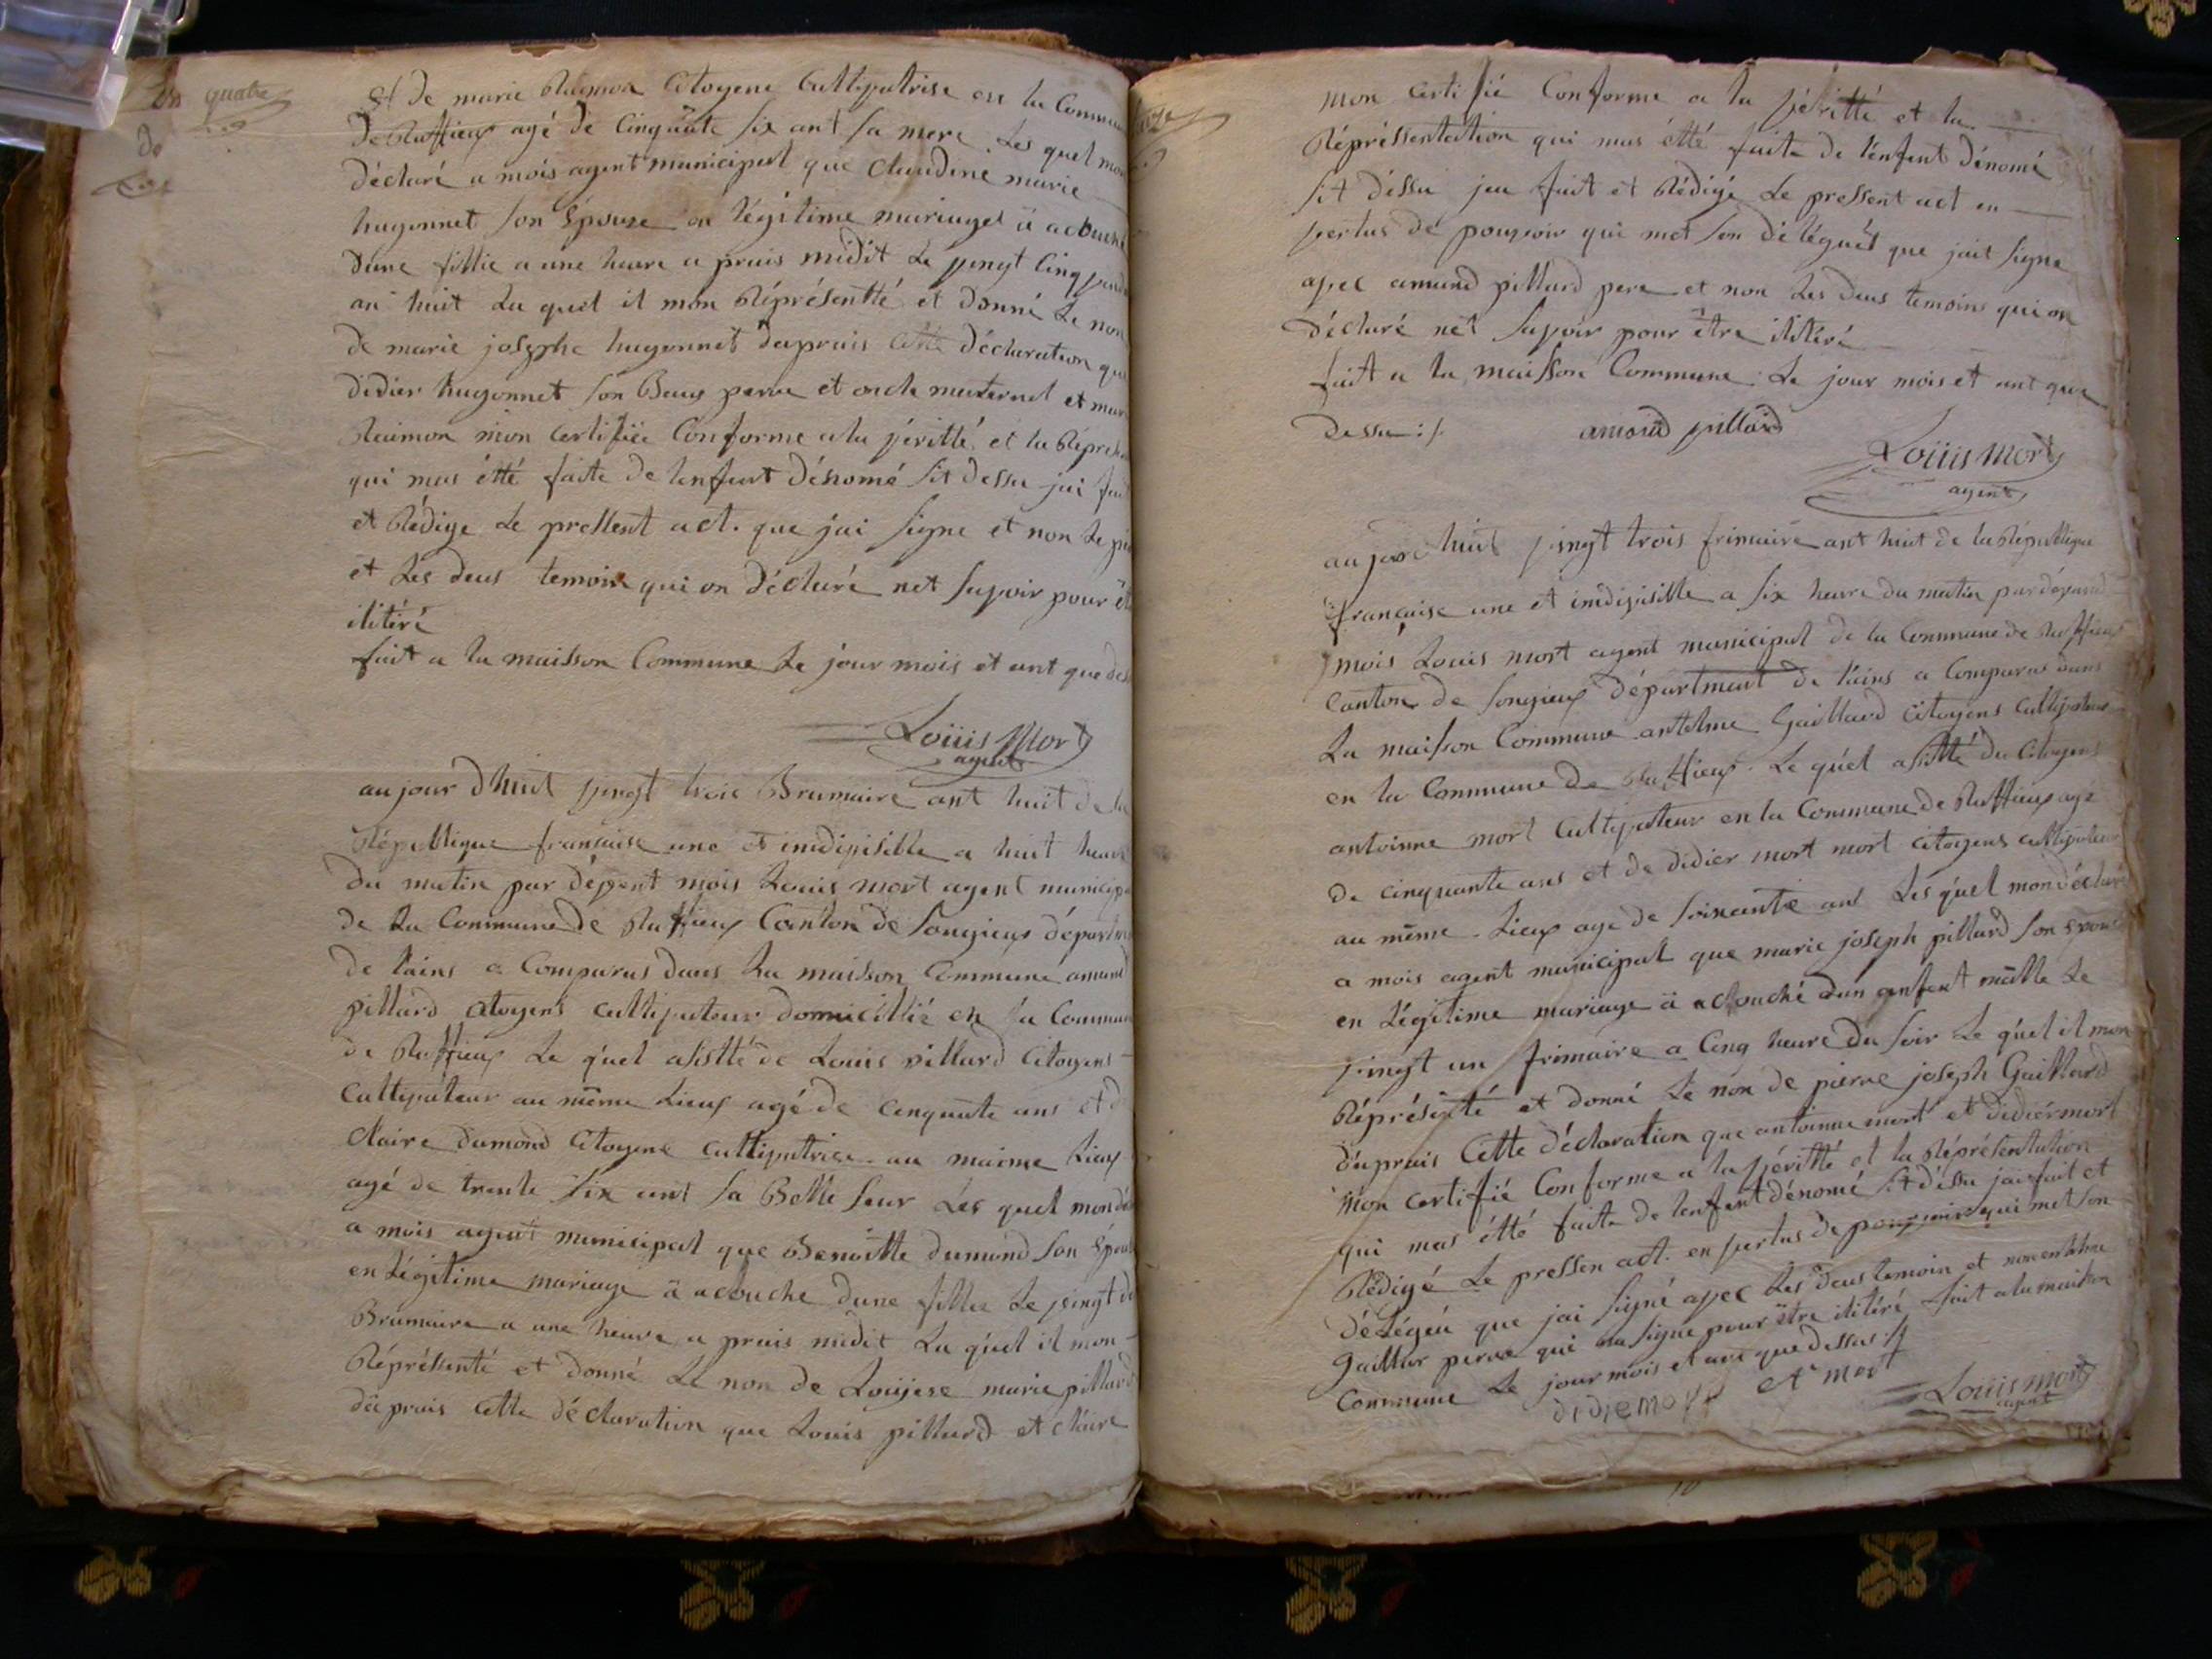 quatre
de
Et de marie Raimon Citoyene Cultivatrise en la Commun
de Ruffieux agé de Cinquante six ant sa mere. Les quel mon
déclaré a mois agent municipal que Claudine marie
hugonnet son Epouze en légitime mariaget ä acouché
dune fillie a une heure a prais midit Le vingt Cinq vend
an huit La quel il mon Réprésentté et donné Le non
de marie josephe hugonnet daprais Cette déclaration que
didier hugonnet son Beaux perre et oncle maternel et mari
Raimon mon Certifiée Conforme a la véritté et la Réprese
qui mas étté faite de lenfant dénomé sit dessu jai fait
et Rédige Le pressent act. que jai signe et non Le pè
et Les deus temoin qui on Déclaré net savoir pour êt
ilitéré
fait a la maisson Commune Le jour mois et ant que des
Loüis Mort
agent
au jour dhuit vingt trois Brumaire ant huit de la
République française une et indivisible a huit heur
du matin par devent mois Louis mort agent municipa
de La Commune de Ruffieux Canton de Songieux départm
de Lains a Comparus dans La maisson Commune amand
pillard citoyens cultivateur domicillié en sa Commun
de Ruffieux Le quel asistté de Louis pillard Citoyens
Cultivateur au même Lieux agé de Cenquante ans et d
Claire dumond Citoyene Cultivatrise au maime Lieux
agé de trente six ant sa Belle seur Les quel mon dé
a mois agent municipal que Benoitte dumond son Epou
en Légitime mariage ä acouche dune fillie Le vingt d
Brumaire a une heure a prais midit La quel il mon
Réprésenté et donné Le non de Loüiese marie pillard
daprais Cette déclaration que Louis pillard et Claire
mon Certifié Conforme a la véritté et la
Répréssentation qui mas étté faite de lenfent dénomé
sit déssu jeu fait et Rédigé Le pressent act en
vertus de pouvoir qui met son déléguét que jait signe
avec amand pillard pere et non Les deus temoins qui on
déclaré net savoir pour être ilitéré
fait a la maisson Commune. Le jour mois et ant que
dessu :/.
amand pillard
Loüis Mort
agent
au jour dhuit vingt trois frimaire ant huit de la République
française une et indivisible a six heure du matin par dévend
mois Louis mort agent municipal de la Commune de Ruffieux
Canton de Songieux départment de Lains a Comparus dans
La maisson Commune antelme Gaillard citoyens Cultivateur
en la Commune de Ruffieux. Le quél asistté du Citoyens
antoinne mort Cultivateur en la Commune de Ruffieux agé
de cinquante ans et de didier mort mort citoyens cultivateur
au même Lieux age de soixante ant Les quel mon déclaré
a mois agent municipal que marie joseph pillard son epouse
en Légitime mariage ä acouché dun anfant mälle Le
vingt un frimaire a Cenq heure du soir Le quel il mon
Réprésenté et donné Le non de pierre joseph Gaillard
daprais Cette déclaration que antoinne mort et didier mort
mon certifié Conforme a la véritté et la Réprésentation
qui mas étté faite de lenfant dénomé sit déssu jais fait et
Rédigé Le pressen act. en vertus de pouvoir qui met son
délégéu que jai signé avec Les deus temoin et non entelme
gaillar perre qui na signe pour être ilitéré fait a la maison
Commune Le jour mois et ant que dessus :/
didie mort et mort
Louis mort
agent